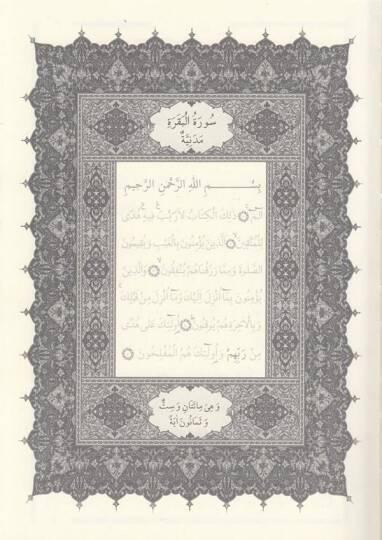 سُورَةُ الْبَقَرَةِ
مَدَنِيَّةٌ
بِسْمِ اللّٰهِ الرَّحْمٰنِ الرَّحِيمِ
الٓمٓ ۝ ذٰلِكَ الْكِتَابُ لَا رَيْبَ ۛ فِيهِ ۛ هُدًى
لِلْمُتَّقِينَ ۝ اَلَّذِينَ يُؤْمِنُونَ بِالْغَيْبِ وَيُقِيمُونَ
الصَّلٰوةَ وَمِمَّا رَزَقْنَاهُمْ يُنْفِقُونَ ۝ وَالَّذِينَ
يُؤْمِنُونَ بِمَٓا اُنْزِلَ اِلَيْكَ وَمَٓا اُنْزِلَ مِنْ قَبْلِكَ ۚ
وَبِالْاٰخِرَةِ هُمْ يُوقِنُونَ ۝ اُو۬لٰٓئِكَ عَلٰى هُدًى
مِنْ رَبِّهِمْ وَاُو۬لٰٓئِكَ هُمُ الْمُفْلِحُونَ ۝
وَهِيَ مِائَتَانِ وَسِتٌّ
وَثَمَانُونَ اٰيَةً